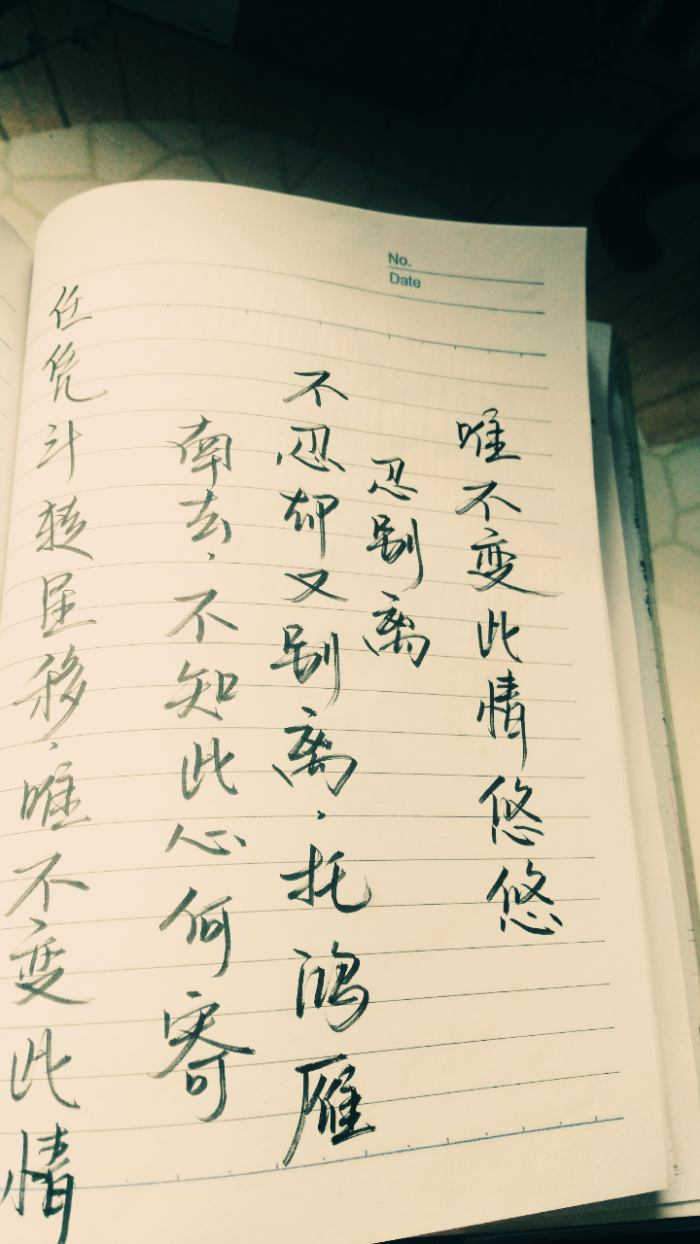 No.
Date
唯不变此情悠悠
忍别离
不忍却又别离，托鸿雁
南去，不知此心何寄
任凭斗转星移，唯不变此情